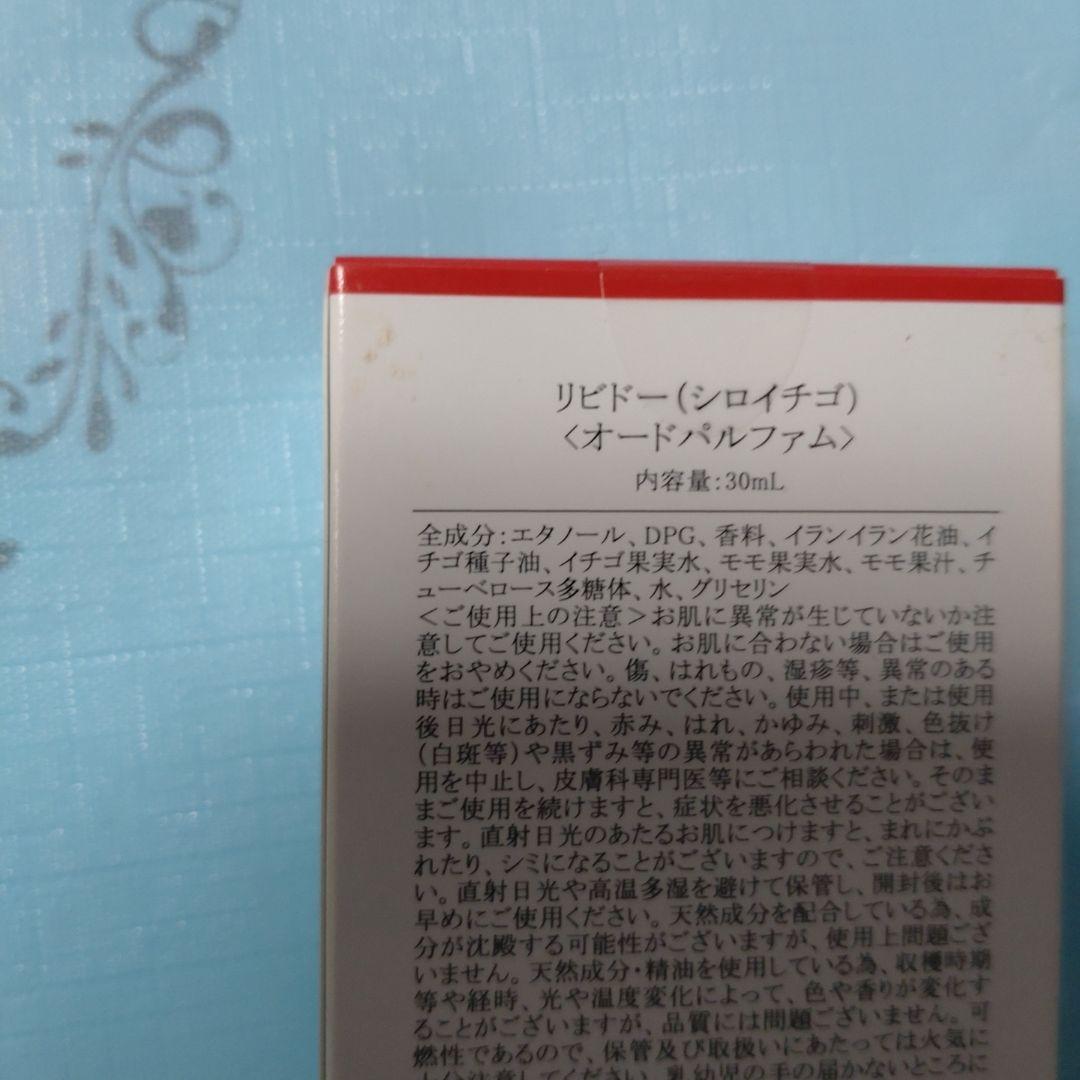 リビドー(シロイチゴ)
〈オードパルファム〉
内容量:30mL
全成分:エタノール、DPG、香料、イランイラン花油、イ
チゴ種子油、イチゴ果実水、モモ果実水、モモ果汁、チ
ューベロース多糖体、水、グリセリン
＜ご使用上の注意＞お肌に異常が生じていないか注
意してご使用ください。お肌に合わない場合はご使用
をおやめください。傷、はれもの、湿疹等、異常のある
時はご使用にならないでください。使用中、または使用
後日光にあたり、赤み、はれ、かゆみ、刺激、色抜け
(白斑等)や黒ずみ等の異常があらわれた場合は、使
用を中止し、皮膚科専門医等にご相談ください。そのま
まご使用を続けますと、症状を悪化させることがござい
ます。直射日光のあたるお肌につけますと、まれにかぶ
れたり、シミになることがございますので、ご注意くださ
い。直射日光や高温多湿を避けて保管し、開封後はお
早めにご使用ください。天然成分を配合している為、成
分が沈殿する可能性がございますが、使用上問題ござ
いません。天然成分・精油を使用している為、収穫時期
等や経時、光や温度変化によって、色や香りが変化す
ることがございますが、品質には問題ございません。可
燃性であるので、保管及び取扱いにあたっては火気に
十分注意してください。乳幼児の手の届かないところに